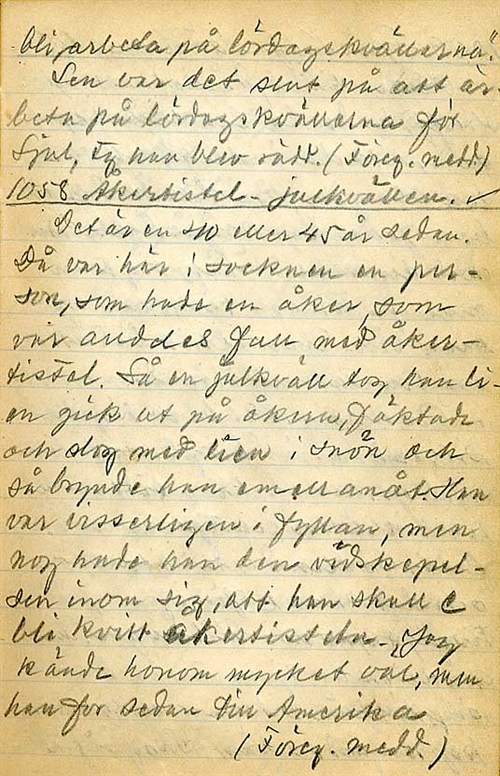 bli, arbeta på lördagskvällarna".
Sen var det slut på att ar-
beta på lördagskvällarna för
Sjul, ty han blev rädd. (Föreg. medd)
1058 Åkertistel - julkvällen. ✓
Det är en 40 eller 45 år sedan.
Då var här i socknen en per-
son, som hade en åker, som
var alldeles full med åker-
tistel. Så en julkväll tog han li-
en gick ut på åkern, fäktade
och slog med lien i snön och
så brynde han emellanåt. Han
var visserligen i fyllan, men
nog hade han den vidskepel-
sen inom sig, att han skulle
bli kvitt åkertisteln. "Jag
kände honom mycket väl, men
han for sedan till Amerika
(Föreg. medd.)